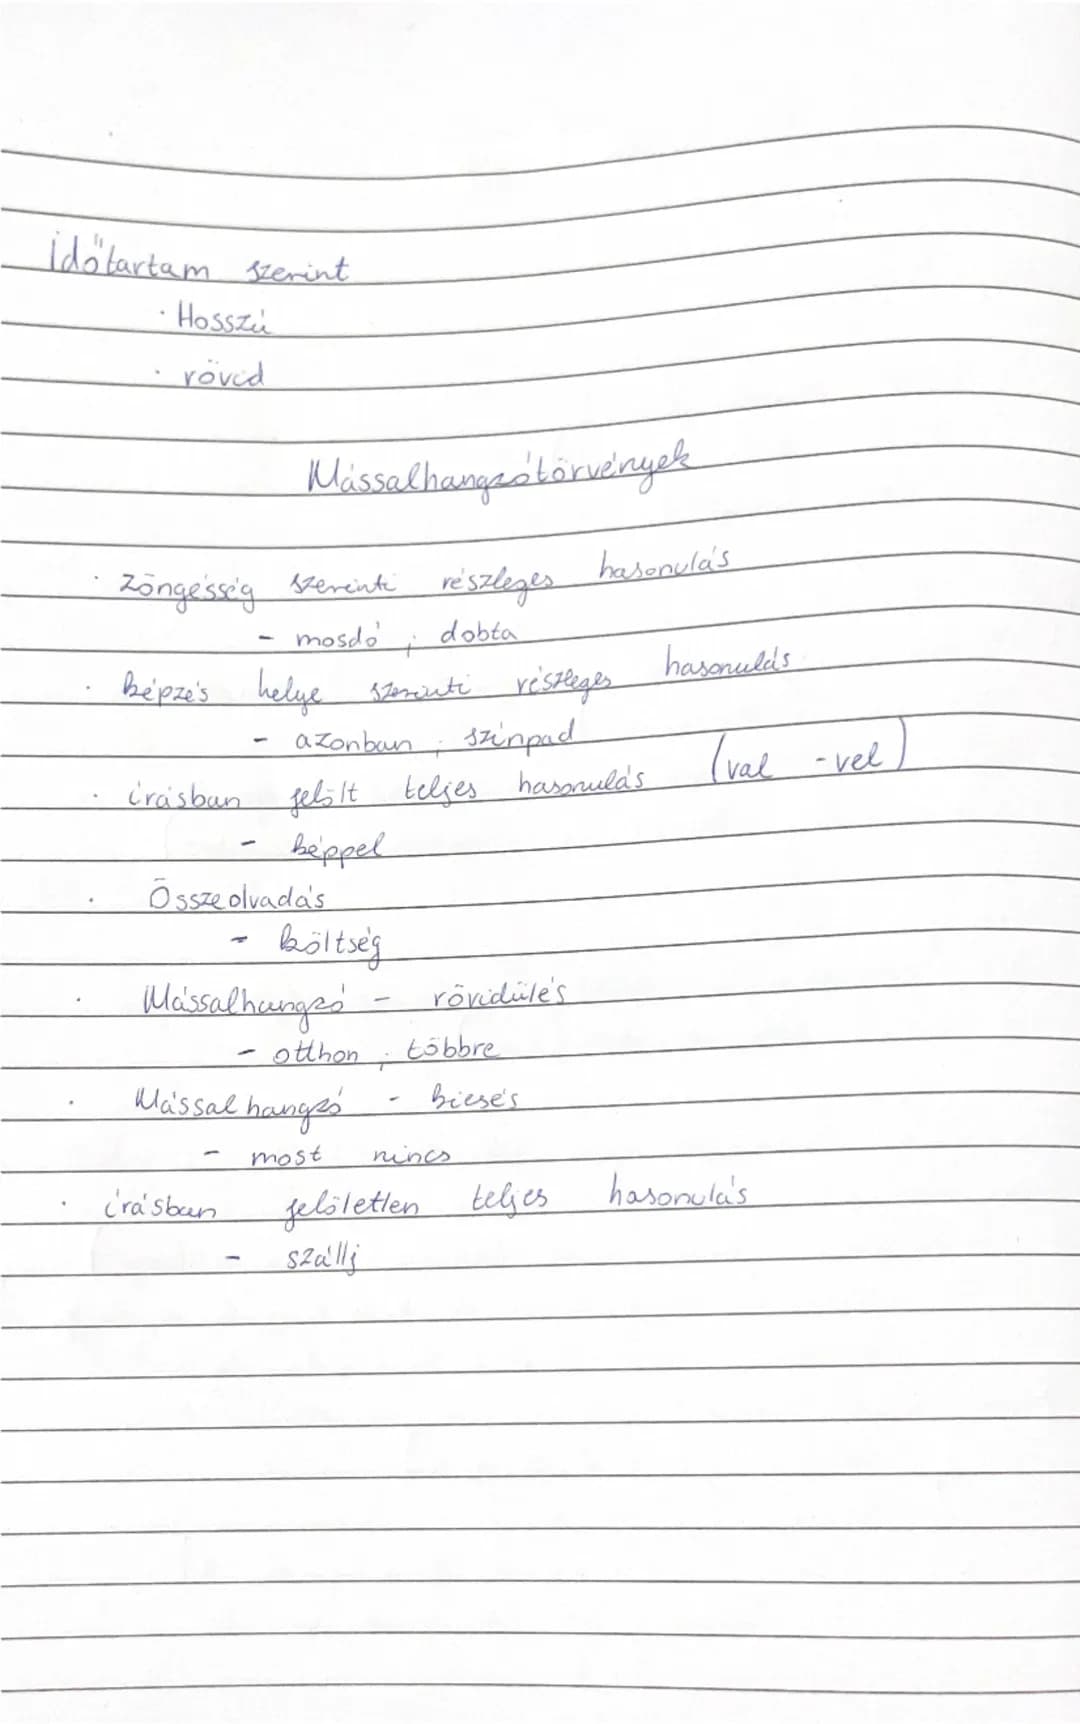 Időtartam szerint
· Hosszú
· rövid
Mássalhangzótörvények
· Zöngésség szerinti részleges hasonulás
- mosdó, dobta
· képzés helye szerinti részleges hasonulás
- azonban, színpad
· írásban jelölt teljes hasonulás (val -vel)
- képpel
· Összeolvadás
- költség
· Mássalhangzó - rövidülés
- otthon, többre
· Mássalhangzó - kiesés
- most nincs
· írásban jelöletlen teljes hasonulás
- szállj